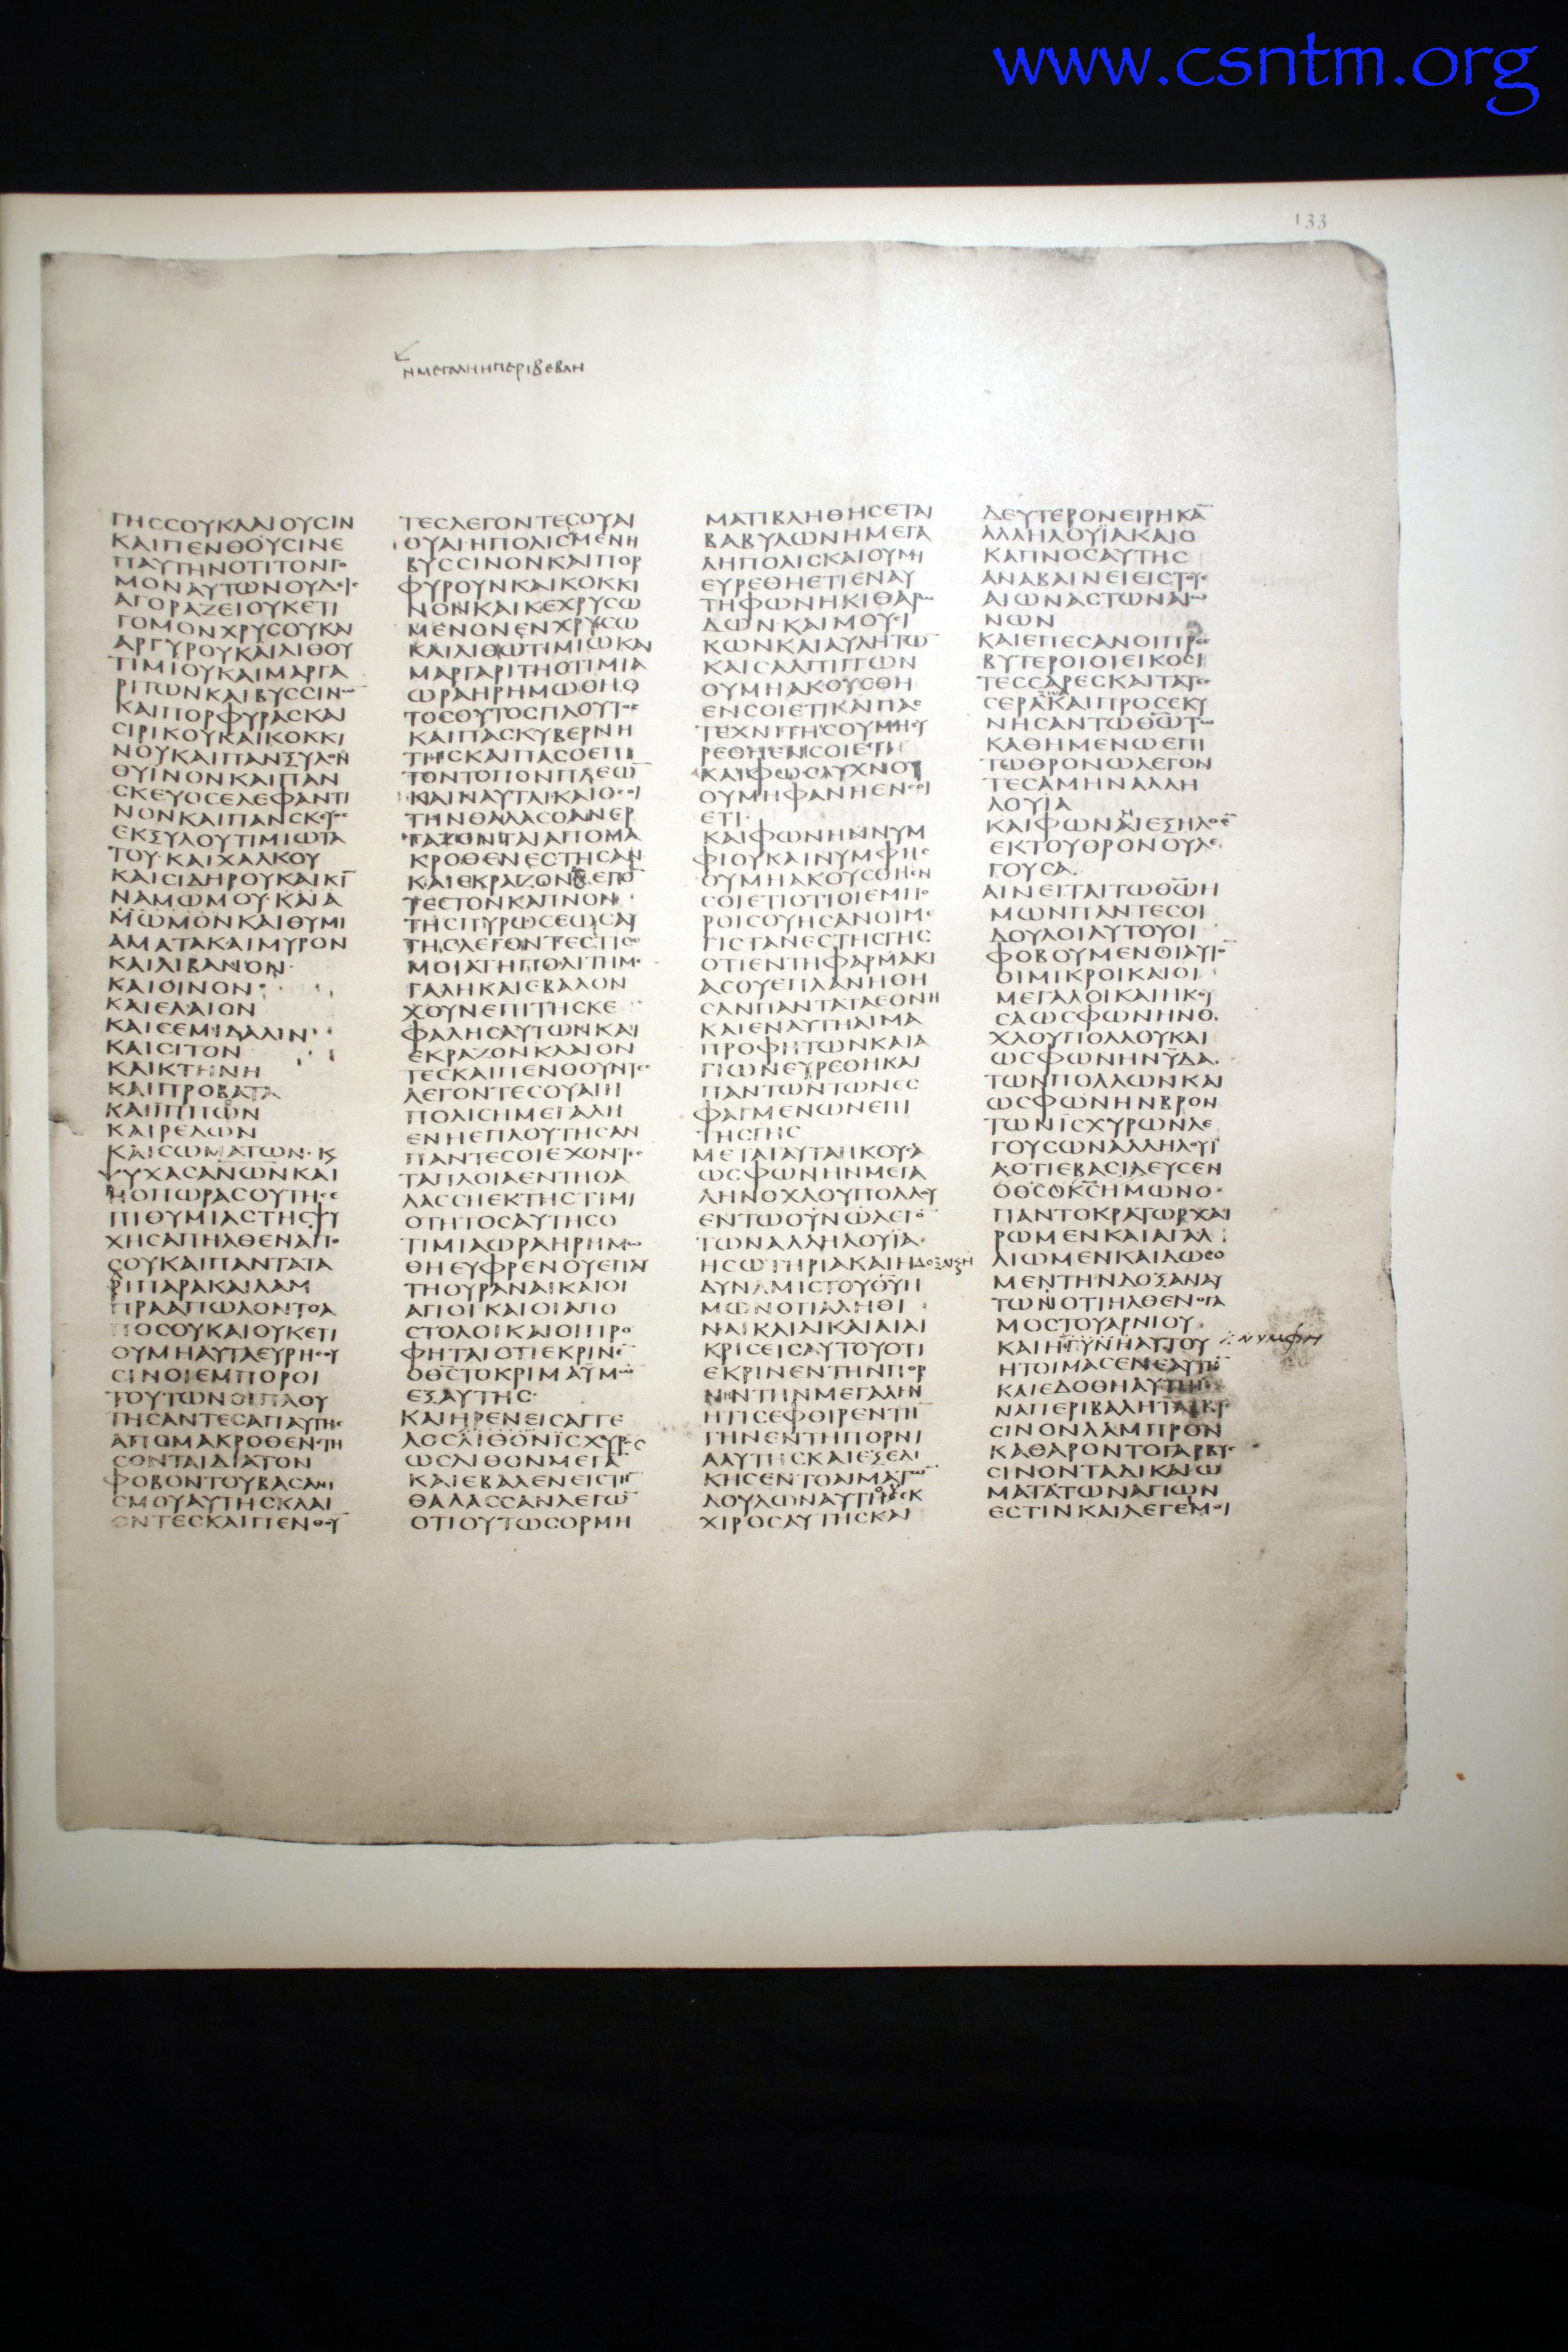 www.csntm.org
133
ΗΜΕΓΑΛΗΗΠΕΡΙΒΕΒΛΗ
ΓΗϹϹΟΥΚΛΑΙΟΥϹΙΝ
ΚΑΙΠΕΝΘΟΥϹΙΝΕ
ΠΑΥΤΗΝΟΤΙΤΟΝΓΟ
ΜΟΝΑΥΤΩΝΟΥΔΙϹ
ΑΓΟΡΑΖΕΙΟΥΚΕΤΙ
ΓΟΜΟΝΧΡΥϹΟΥΚΑΙ
ΑΡΓΥΡΟΥΚΑΙΛΙΘΟΥ
ΤΙΜΙΟΥΚΑΙΜΑΡΓΑ
ΡΙΤΩΝΚΑΙΒΥϹϹΙΝΩ
ΚΑΙΠΟΡΦΥΡΑϹΚΑΙ
ϹΙΡΙΚΟΥΚΑΙΚΟΚΚΙ
ΝΟΥΚΑΙΠΑΝΞΥΛΟΝ
ΘΥΪΝΟΝΚΑΙΠΑΝ
ϹΚΕΥΟϹΕΛΕΦΑΝΤΙ
ΝΟΝΚΑΙΠΑΝϹΚΕΥΟϹ
ΕΚΞΥΛΟΥΤΙΜΙΩΤΑ
ΤΟΥ·ΚΑΙΧΑΛΚΟΥ
ΚΑΙϹΙΔΗΡΟΥΚΑΙΚΙ̅
ΝΑΜΩΜΟΥ·ΚΑΙΑ
ΜΩΜΟΝΚΑΙΘΥΜΙ
ΑΜΑΤΑΚΑΙΜΥΡΟΝ
ΚΑΙΛΙΒΑΝΟΝ
ΚΑΙΟΙΝΟΝ
ΚΑΙΕΛΑΙΟΝ
ΚΑΙϹΕΜΙΔΑΛΙΝ
ΚΑΙϹΙΤΟΝ
ΚΑΙΚΤΗΝΗ
ΚΑΙΠΡΟΒΑΤΑ
ΚΑΙΠΠΩΝ
ΚΑΙΡΕΔΩΝ
ΚΑΙϹΩΜΑΤΩΝ·Κϗ
ΨΥΧΑϹΑΝΩΝΚΑΙ
ΗΟΠΩΡΑϹΟΥΤΗϹΕ
ΠΙΘΥΜΙΑϹΤΗϹΨΥ
ΧΗϹΑΠΗΛΘΕΝΑΠΟ
ϹΟΥΚΑΙΠΑΝΤΑΤΑ
ΛΙΠΑΡΑΚΑΙΛΑΜ
ΠΡΑΑΠΩΛΟΝΤΟΑ
ΠΟϹΟΥΚΑΙΟΥΚΕΤΙ
ΟΥΜΗΑΥΤΑΕΥΡΗϹΟΥ
ϹΙΝΟΙΕΜΠΟΡΟΙ
ΤΟΥΤΩΝΟΙΠΛΟΥ
ΤΗϹΑΝΤΕϹΑΠΑΥΤΗϹ
ΑΠΟΜΑΚΡΟΘΕΝϹΤΗ
ϹΟΝΤΑΙΔΙΑΤΟΝ
ΦΟΒΟΝΤΟΥΒΑϹΑΝΙ
ϹΜΟΥΑΥΤΗϹΚΛΑΙ
ΟΝΤΕϹΚΑΙΠΕΝΘΟΥ̅
ΤΕϹΛΕΓΟΝΤΕϹΟΥΑΙ
ΟΥΑΙΗΠΟΛΙϹΜΕΝΗ
ΒΥϹϹΙΝΟΝΚΑΙΠΟΡ
ΦΥΡΟΥΝΚΑΙΚΟΚΚΙ
ΝΟΝΚΑΙΚΕΧΡΥϹΩ
ΜΕΝΟΝΕΝΧΡΥϹΩ
ΚΑΙΛΙΘΩΤΙΜΙΩΚΑΙ
ΜΑΡΓΑΡΙΤΗΟΤΙΜΙΑ
ΩΡΑΗΡΗΜΩΘΗΟ
ΤΟϹΟΥΤΟϹΠΛΟΥΤΟϹ
ΚΑΙΠΑϹΚΥΒΕΡΝΗ
ΤΗϹΚΑΙΠΑϹΟΕΠΙ
ΤΟΝΤΟΠΟΝΠΛΕΩ̅
ΚΑΙΝΑΥΤΑΙΚΑΙΟϹΟΙ
ΤΗΝΘΑΛΑϹϹΑΝΕΡ
ΓΑΖΟΝΤΑΙΑΠΟΜΑ
ΚΡΟΘΕΝΕϹΤΗϹΑΝ
ΚΑΙΕΚΡΑΖΟΝΒΛΕΠΟ̅
ΤΕϹΤΟΝΚΑΠΝΟΝ
ΤΗϹΠΥΡΩϹΕΩϹΑΥ
ΤΗϹΛΕΓΟΝΤΕϹΤΙϹΟ
ΜΟΙΑΤΗΠΟΛΙΤΗΜΕ
ΓΑΛΗΚΑΙΕΒΑΛΟΝ
ΧΟΥΝΕΠΙΤΗϹΚΕ
ΦΑΛΗϹΑΥΤΩΝΚΑΙ
ΕΚΡΑΖΟΝΚΛΑΙΟΝ
ΤΕϹΚΑΙΠΕΝΘΟΥΝΤΕϹ
ΛΕΓΟΝΤΕϹΟΥΑΙΗ
ΠΟΛΙϹΗΜΕΓΑΛΗ
ΕΝΗΕΠΛΟΥΤΗϹΑΝ
ΠΑΝΤΕϹΟΙΕΧΟΝΤΕϹ
ΤΑΠΛΟΙΑΕΝΤΗΘΑ
ΛΑϹϹΗΕΚΤΗϹΤΙΜΙ
ΟΤΗΤΟϹΑΥΤΗϹΟ
ΤΙΜΙΑΩΡΑΗΡΗΜΩ
ΘΗΕΥΦΡΕΝΟΥΕΠΑΥ
ΤΗΟΥΡΑΝΑΙΚΑΙΟΙ
ΑΓΙΟΙΚΑΙΟΙΑΠΟ
ϹΤΟΛΟΙΚΑΙΟΙΠΡΟ
ΦΗΤΑΙΟΤΙΕΚΡΙΝΕ̅
ΟΘ̅ϹΤΟΚΡΙΜΑΥΜΩ̅
ΕΞΑΥΤΗϹ·
ΚΑΙΗΡΕΝΕΙϹΑΓΓΕ
ΛΟϹΛΙΘΟΝΙϹΧΥΡΟϹ
ΩϹΛΙΘΟΝΜΕΓΑ̅
ΚΑΙΕΒΑΛΕΝΕΙϹΤΗ̅
ΘΑΛΑϹϹΑΝΛΕΓΩ̅
ΟΤΙΟΥΤΩϹΟΡΜΗ
ΜΑΤΙΒΛΗΘΗϹΕΤΑΙ
ΒΑΒΥΛΩΝΗΜΕΓΑ
ΛΗΠΟΛΙϹΚΑΙΟΥΜΗ
ΕΥΡΕΘΗΕΤΙΕΝΑΥ
ΤΗΦΩΝΗΚΙΘΑΡΩ
ΔΩΝ·ΚΑΙΜΟΥϹΙ
ΚΩΝΚΑΙΑΥΛΗΤΩ̅
ΚΑΙϹΑΛΠΙΓΓΩΝ
ΟΥΜΗΑΚΟΥϹΘΗ
ΕΝϹΟΙΕΤΙΚΑΙΠΑϹ
ΤΕΧΝΙΤΗϹΟΥΜΗΕΥ
ΡΕΘΗΕΝϹΟΙΕΤΙ
ΚΑΙΦΩϹΛΥΧΝΟΥ
ΟΥΜΗΦΑΝΗΕΝϹΟΙ
ΕΤΙ·
ΚΑΙΦΩΝΗΝΝΥΜ
ΦΙΟΥΚΑΙΝΥΜΦΗϹ
ΟΥΜΗΑΚΟΥϹΘΗΕΝ
ϹΟΙΕΤΙΟΤΙΟΙΕΜΠΟ
ΡΟΙϹΟΥΗϹΑΝΟΙΜΕ
ΓΙϹΤΑΝΕϹΤΗϹΓΗϹ
ΟΤΙΕΝΤΗΦΑΡΜΑΚΙ
ΑϹΟΥΕΠΛΑΝΗΘΗ
ϹΑΝΠΑΝΤΑΤΑΕΘΝΗ
ΚΑΙΕΝΑΥΤΗΑΙΜΑ
ΠΡΟΦΗΤΩΝΚΑΙΑ
ΓΙΩΝΕΥΡΕΘΗΚΑΙ
ΠΑΝΤΩΝΤΩΝΕϹ
ΦΑΓΜΕΝΩΝΕΠΙ
ΤΗϹΓΗϹ
ΜΕΤΑΤΑΥΤΑΗΚΟΥϹΑ
ΩϹΦΩΝΗΝΜΕΓΑ
ΛΗΝΟΧΛΟΥΠΟΛΛΟΥ
ΕΝΤΩΟΥΝΩΛΕΓΟ̅
ΤΩΝΑΛΛΗΛΟΥΪΑ·
ΗϹΩΤΗΡΙΑΚΑΙΗΔΟΞΑΚϗΗ
ΔΥΝΑΜΙϹΤΟΥΘΥΗ
ΜΩΝΟΤΙΑΛΗΘΙ
ΝΑΙΚΑΙΔΙΚΑΙΑΙΑΙ
ΚΡΙϹΕΙϹΑΥΤΟΥΟΤΙ
ΕΚΡΙΝΕΝΤΗΝΠΟΡ
ΝΗΝΤΗΝΜΕΓΑΛΗΝ
ΗΤΙϹΕΦΘΙΡΕΝΤΗ̅
ΓΗΝΕΝΤΗΠΟΡΝΙ
ΑΑΥΤΗϹΚΑΙΕΞΕΔΙ
ΚΗϹΕΝΤΟΑΙΜΑΤΩ̅
ΔΟΥΛΩΝΑΥΤΟΥΕΚ
ΧΙΡΟϹΑΥΤΗϹΚΑΙ
ΔΕΥΤΕΡΟΝΕΙΡΗΚΑ̅
ΑΛΛΗΛΟΥΪΑΚΑΙΟ
ΚΑΠΝΟϹΑΥΤΗϹ
ΑΝΑΒΑΙΝΕΙΕΙϹΤΟΥϹ
ΑΙΩΝΑϹΤΩΝΑΙΩ
ΝΩΝ
ΚΑΙΕΠΕϹΑΝΟΙΠΡΕϹ
ΒΥΤΕΡΟΙΟΙΕΙΚΟϹΙ
ΤΕϹϹΑΡΕϹΚΑΙΤΑΤΕϹ
ϹΕΡΑΚΑΙΠΡΟϹΕΚΥ
ΝΗϹΑΝΤΩΘΩ̅ΤΩ
ΚΑΘΗΜΕΝΩΕΠΙ
ΤΩΘΡΟΝΩΛΕΓΟΝ
ΤΕϹΑΜΗΝΑΛΛΗ
ΛΟΥΪΑ
ΚΑΙΦΩΝΑΙΕΞΗΛΘΕ̅
ΕΚΤΟΥΘΡΟΝΟΥΛΕ
ΓΟΥϹΑ·
ΑΙΝΕΙΤΑΙΤΩΘΩ̅Η
ΜΩΝΠΑΝΤΕϹΟΙ
ΔΟΥΛΟΙΑΥΤΟΥΟΙ
ΦΟΒΟΥΜΕΝΟΙΑΥΤΟ̅
ΟΙΜΙΚΡΟΙΚΑΙΟΙ
ΜΕΓΑΛΟΙΚΑΙΗΚΟΥ
ϹΑΩϹΦΩΝΗΝΟ
ΧΛΟΥΠΟΛΛΟΥΚΑΙ
ΩϹΦΩΝΗΝΫΔΑ
ΤΩΝΠΟΛΛΩΝΚΑΙ
ΩϹΦΩΝΗΝΒΡΟΝ
ΤΩΝΙϹΧΥΡΩΝΛΕ
ΓΟΥϹΩΝΑΛΛΗΛΟΥΪ
ΑΟΤΙΕΒΑϹΙΛΕΥϹΕΝ
ΟΘ̅ϹΟΚ̅ϹΗΜΩΝΟ
ΠΑΝΤΟΚΡΑΤΩΡΧΑΙ
ΡΩΜΕΝΚΑΙΑΓΑΛ
ΛΙΩΜΕΝΚΑΙΔΩϹΟ
ΜΕΝΤΗΝΔΟΞΑΝΑΥ
ΤΩΟΤΙΗΛΘΕΝΟΓΑ
ΜΟϹΤΟΥΑΡΝΙΟΥ
ΚΑΙΗΓΥΝΗΑΥΤΟΥ ΝΥΜΦΗ
ΗΤΟΙΜΑϹΕΝΕΑΥΤΗ̅
ΚΑΙΕΔΟΘΗΑΥΤΗΙ
ΝΑΠΕΡΙΒΑΛΗΤΑΙΒΥϹ
ϹΙΝΟΝΛΑΜΠΡΟΝ
ΚΑΘΑΡΟΝΤΟΓΑΡΒΥϹ
ϹΙΝΟΝΤΑΔΙΚΑΙΩ
ΜΑΤΑΤΩΝΑΓΙΩΝ
ΕϹΤΙΝΚΑΙΛΕΓΕΙΜΟΙ